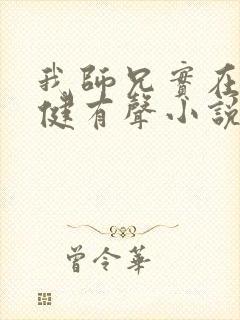 我師兄實在
健有聲小說
曾令華